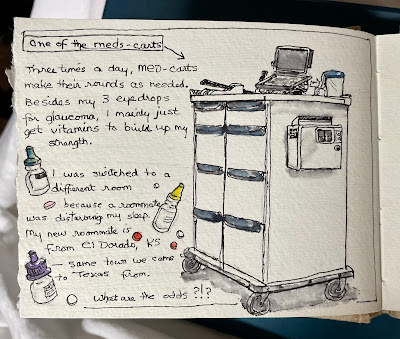 One of the meds-carts
Three times a day, MED-carts
make their rounds as needed.
Besides my 3 eyedrops
for glaucoma, I mainly just
get vitamins to build up my
strength.
I was switched to a
different room
because a roommate
was disturbing my sleep.
My new roommate is
from El Dorado, KS
– same town we came
to Texas from.
What are the odds ?!?